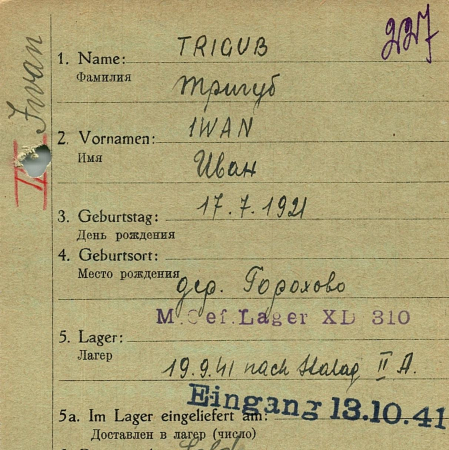 227
Iwan
II
1. Name: TRIGUB
Фамилия Тригуб
2. Vornamen: IWAN
Имя Иван
3. Geburtstag: 17.7.1921
День рождения
4. Geburtsort:
Место рождения дер. Горохово
M.Gef.Lager XD 310
5. Lager:
Лагерь 19.9.41 nach Stalag II A.
Eingang 13.10.41
5a. Im Lager eingeliefert am:
Доставлен в лагерь (число)